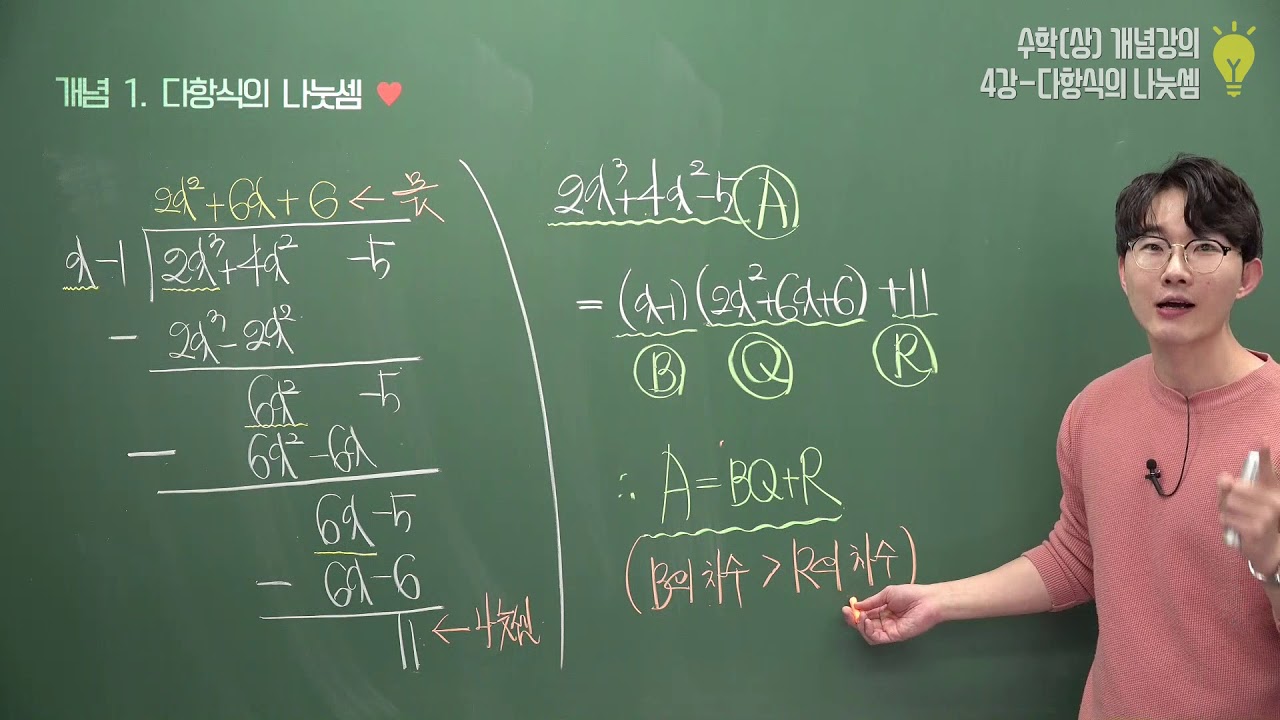 수학(상) 개념강의
4강-다항식의 나눗셈
개념 1. 다항식의 나눗셈 ♥
2x²+6x+6 ← 몫
x-1 2x³+4x² -5
- 2x³-2x²
6x² -5
- 6x²-6x
6x-5
- 6x-6
11 ← 나눗셈
2x³+4x²-5 A
= (x-1)(2x²+6x+6) +11
B Q R
∴ A=BQ+R
(B의 차수 > R의 차수)